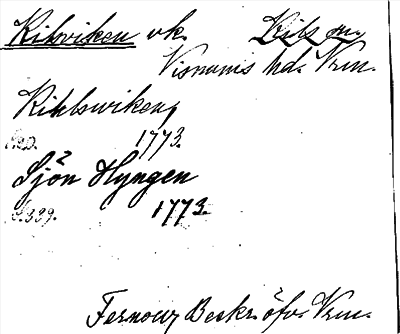 Kilsviken vk. Kils sn.
Visnums hd. Vrm.
Kihlswiken,
1773.
Sjön Hyngen
S. 339. 1773.
Fernow, Beskr. öfv. Vrm.